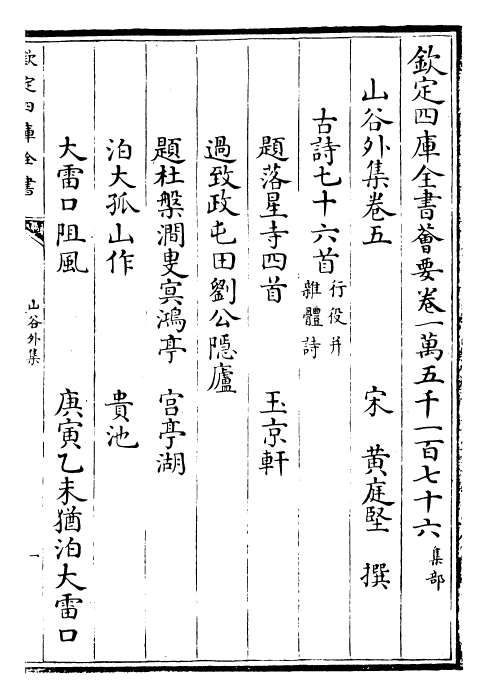 欽定四庫全書薈要卷一萬五千一百七十六 集部
山谷外集卷五 宋 黃庭堅 撰
古詩七十六首 行役幷雜體詩
題落星寺四首 玉京軒
過致政屯田劉公隱廬
題杜槃澗叟㝠鴻亭 宫亭湖
泊大孤山作 貴池
大雷口阻風 庚寅乙未猶泊大雷口
欽定四庫全書
山谷外集
一